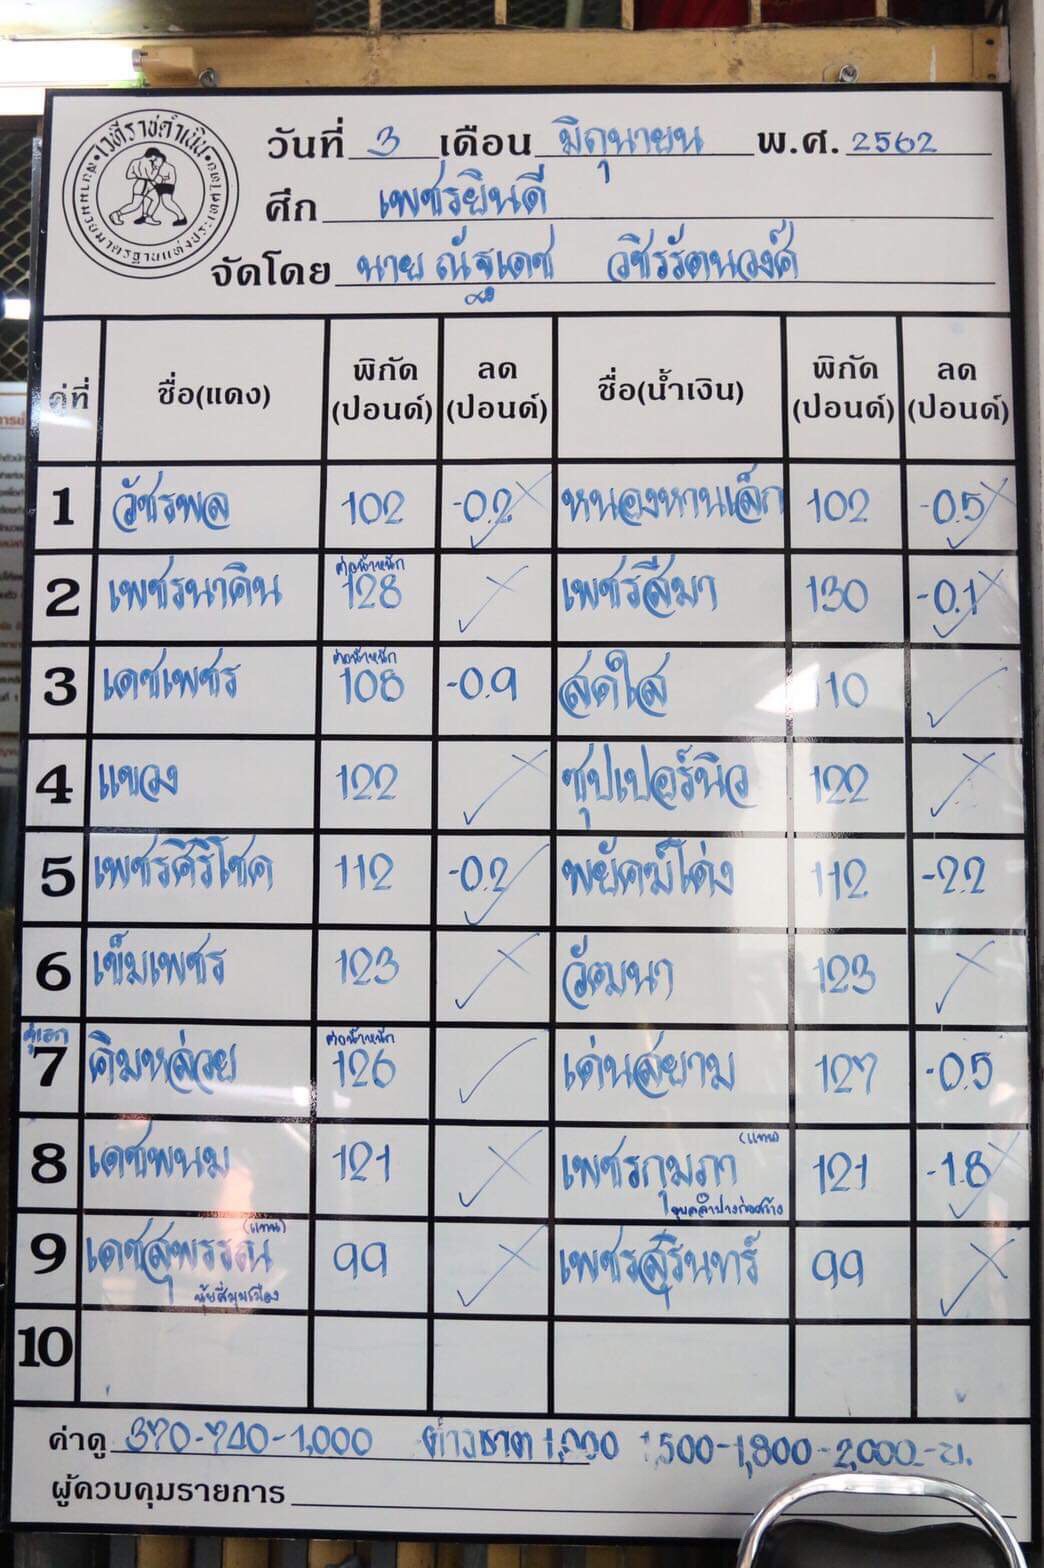 เวทีราชดำเนิน
วันที่ 3 เดือน มิถุนายน พ.ศ. 2562
ศึก เพชรยินดี
จัดโดย นาย ณัฐเดช วชิรรัตนวงศ์
คู่ที่ ชื่อ(แดง) พิกัด (ปอนด์) ลด (ปอนด์) ชื่อ(น้ำเงิน) พิกัด (ปอนด์) ลด (ปอนด์)
1 วัชรพล 102 -0.2 หนองหานเล็ก 102 -0.5
2 เพชรนาคิน ต่อน้ำหนัก 128 เพชรสีมา 130 -0.1
3 เดชเพชร ต่อน้ำหนัก 108 -0.9 สดใส 110
4 แขวง 122 ซุปเปอร์นิว 122
5 เพชรศิริโชค 112 -0.2 พยัคฆ์โค่ง 112 -2.2
6 เข็มเพชร 123 วัฒนา 123
คู่เอก
7 คิมหล่วย ต่อน้ำหนัก 126 เด่นสยาม 127 -0.5
8 เดชพนม 121 เพชรกุมภา (แทน) 121 -1.8
9 เดชสุพรรณ (แทน) 99 เพชรสุรินทร์ 99
10
ค่าดู 370-740-1,000 ต่างชาติ 1,000 1,500-1,800-2,000.-บ.
ผู้ควบคุมรายการ